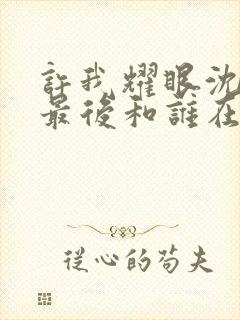 許我耀眼沈
最後和誰在
從心的苟夫